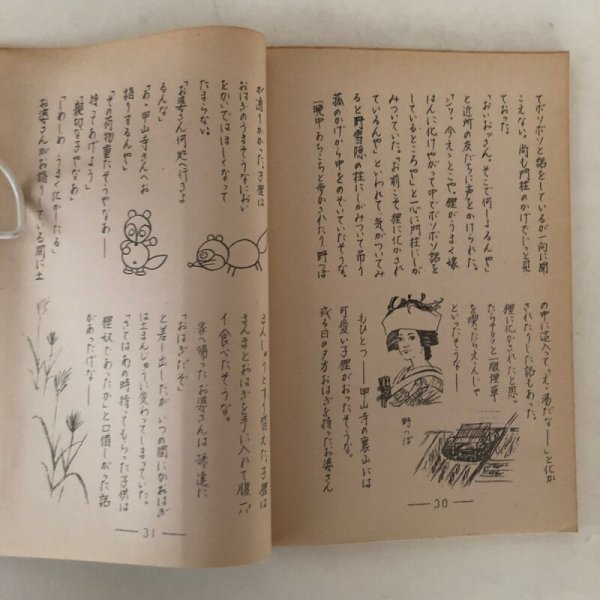 てボソボソと話をしているが一向に聞
こえない。尚も門柱のかげでじっと見
ておった。
「おいおっさん、そこで何しよるんぞ」
と近所の友だちに声をかけられた。
「シッ、今えゝとこや、狸がうまく嫁
はんに化けやがって中でボソボソ話を
しているところや」と一心に門柱にしが
みついていた。「お前こそ狸に化かされ
ているんや」といわれて、気がついてみ
ると野雪隠の柱にしがみついて吊り
菰のかげから中をのぞいていたそうな。
一晩中あちこちと歩かされたり野つぼ
の中に這入って「え、湯だなー」と化か
されたりした話もあった。
狸に化かされたと思っ
たらチョッと一服煙草
を喫ったらえゝんじゃ
といったそうな――
野つぼ
もひとつ――甲山寺の裏山には
可愛い子狸がおったそうな。
或る日の夕方おはぎを持ったお婆さん
― 30 ―
が通りかかった。子狸は
おはぎのうまそうなにおい
をかいでほしくなって
たまらない。
「お婆さん何処へ行きよ
るんな」
「あゝ甲山寺さんへお
詣りするんや」
「その荷物重たそうやなあ――
持ってあげよう」
「親切な子やなあ」
「しめしめ うまく化かしたる」
お婆さんがお詣りしている間に土
まんじゅうとすり替えた。子狸は
まんまとおはぎを手に入れて腹一パ
イ食べたそうな。
家へ帰ったお婆さんは 孫達に
「おはぎだぞ」
と差し出したが、いつの間にかおはぎ
は土まんじゅうに変わってしまっていた。
「さてはあの時持ってもらった子供は
狸奴であったか」と口惜しがった話
があったけな――
― 31 ―